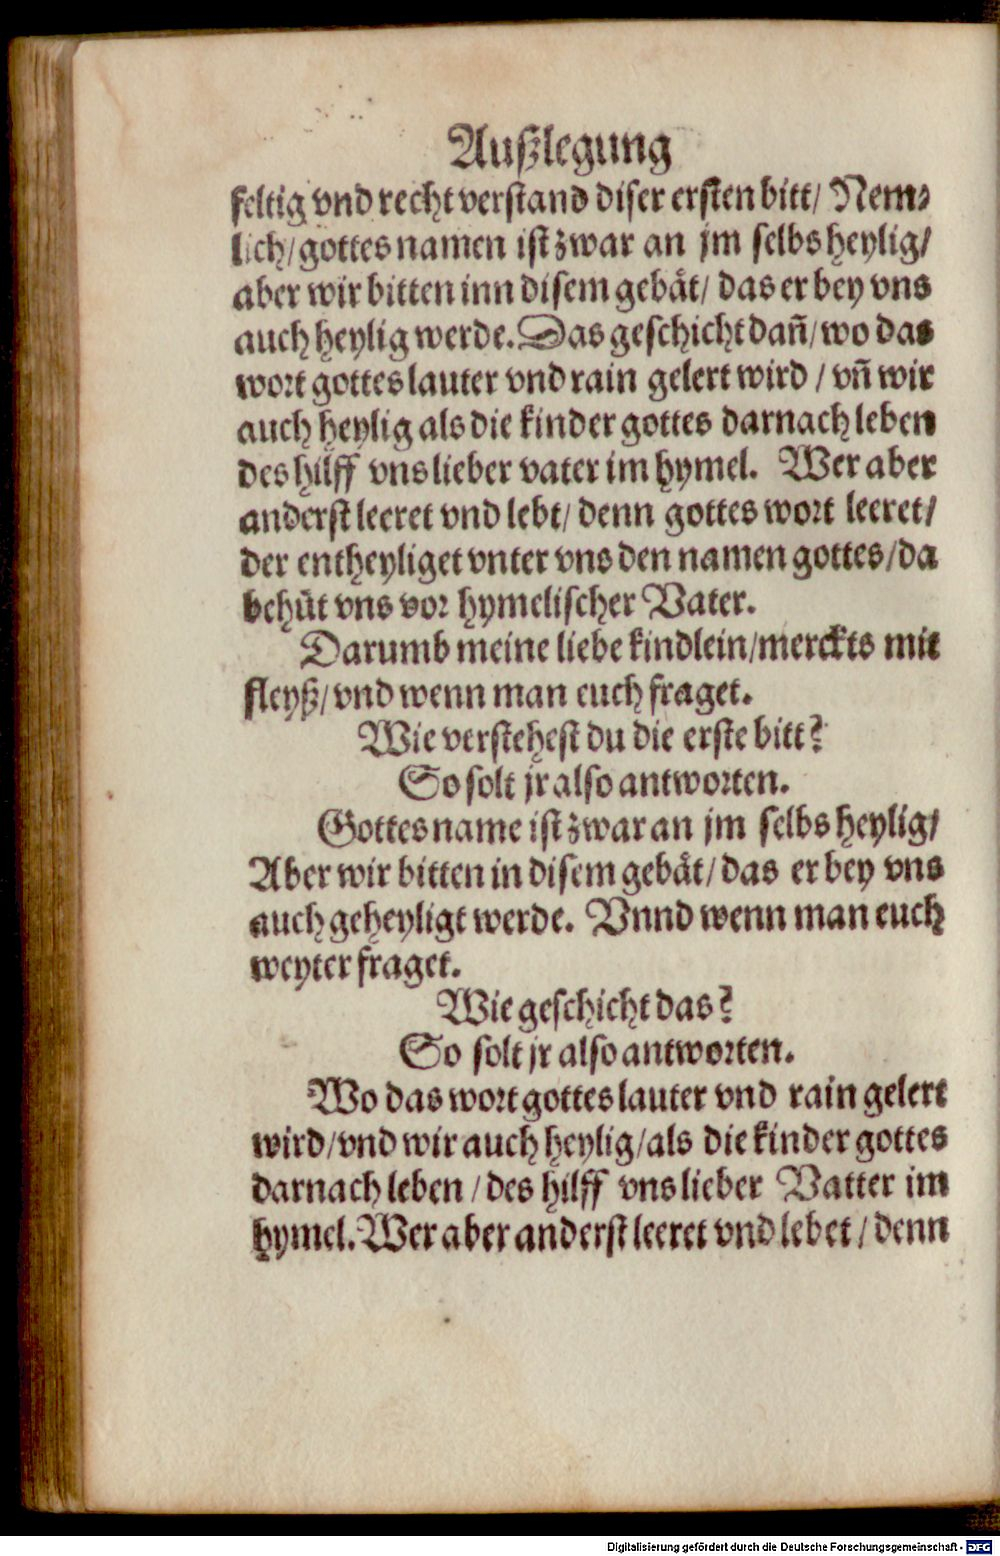 Außlegung
feltig vnd recht verstand diser ersten bitt/ Nem⸗
lich/ gottes namen ist zwar an jm selbs heylig/
aber wir bitten inn disem gebät/ das er bey vns
auch heylig werde. Das geschicht dañ/ wo das
wort gottes lauter vnd rain gelert wird / vñ wir
auch heylig als die kinder gottes darnach leben
des hilff vns lieber vater im hymel. Wer aber
anderst leeret vnd lebt/ denn gottes wort leeret/
der entheyliget vnter vns den namen gottes/ da
behüt vns vor hymelischer Vater.
Darumb meine liebe kindlein/ merckts mit
fleyß/ vnd wenn man euch fraget.
Wie verstehest du die erste bitt?
So solt jr also antworten.
Gottes name ist zwar an jm selbs heylig/
Aber wir bitten in disem gebät/ das er bey vns
auch geheyligt werde. Vnnd wenn man euch
weyter fraget.
Wie geschicht das?
So solt jr also antworten.
Wo das wort gottes lauter vnd rain gelert
wird/ vnd wir auch heylig/ als die kinder gottes
darnach leben / des hilff vns lieber Vatter im
hymel. Wer aber anderst leeret vnd lebet / denn
Digitalisierung gefördert durch die Deutsche Forschungsgemeinschaft - DFG